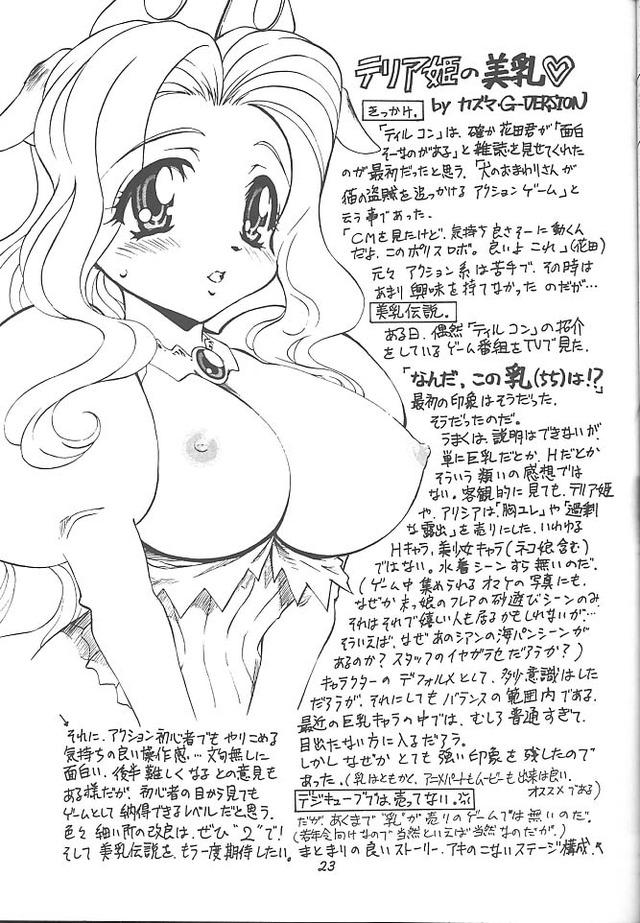 テリア姫の美乳♡
by カズマ・G-VERSION
きっかけ。
「テイルコン」は、確か花田君が「面白
そーなのがある」と雑誌を見せてくれた
のが最初だったと思う。「犬のおまわりさんが
猫の盗賊を追っかけるアクションゲーム」と
云う事であった。
「CMを見たけど、気持ち良さそーに動くん
だよ、このポリスロボ。良いよこれ」(花田)
元々アクション系は苦手で、その時は
あまり興味を持てなかったのだが…
美乳伝説。
ある日、偶然「テイルコン」の紹介
をしているゲーム番組をTVで見た。
「なんだ、この乳(ちち)は!?」
最初の印象はそうだった。
そうだったのだ。
うまくは、説明はできないが、
単に巨乳だとか、Hだとか
そういう類いの感想では
ない。客観的に見ても、テリア姫
や、アリシアは「胸ユレ」や「過剰
な露出」を売りにした、いわゆる
Hキャラ、美少女キャラ(ネコ娘含む)
ではない。水着シーンすら無いのだ。
(ゲーム中集められるオマケの写真にも、
なぜか末っ娘のフレアの砂遊びシーンのみ
それはそれで嬉しい人も居るかもしれないが…
そういえば、なぜあのシアンの海パンシーンが
あるのか?スタッフのイヤガラセだろうか?)
キャラクターのデフォルメとして、多少意識はした
だろうが、それにしてもバランスの範囲内である。
最近の巨乳キャラの中では、むしろ普通すぎて、
目出たない方に入るだろう。
しかしなぜかとても強い印象を残したので
あった。(乳はともかく、アニメパートもムービーも出来は良い。
オススメである)
デジキューブでは売ってない。
だが、あくまで"乳"が売りのゲームでは無いのだ。
(若年令向けなので当然といえば当然なのだが。)
まとまりの良いストーリー、アキのこないステージ構成。
それに、アクション初心者でもやりこめる
気持ちの良い操作感…文句無しに
面白い。後半難しくなるとの意見も
ある様だが、初心者の目から見ても
ゲームとして納得できるレベルだと思う。
色々細い所の改良は、ぜひ"2"で!
そして美乳伝説を、もう一度期待したい。
23